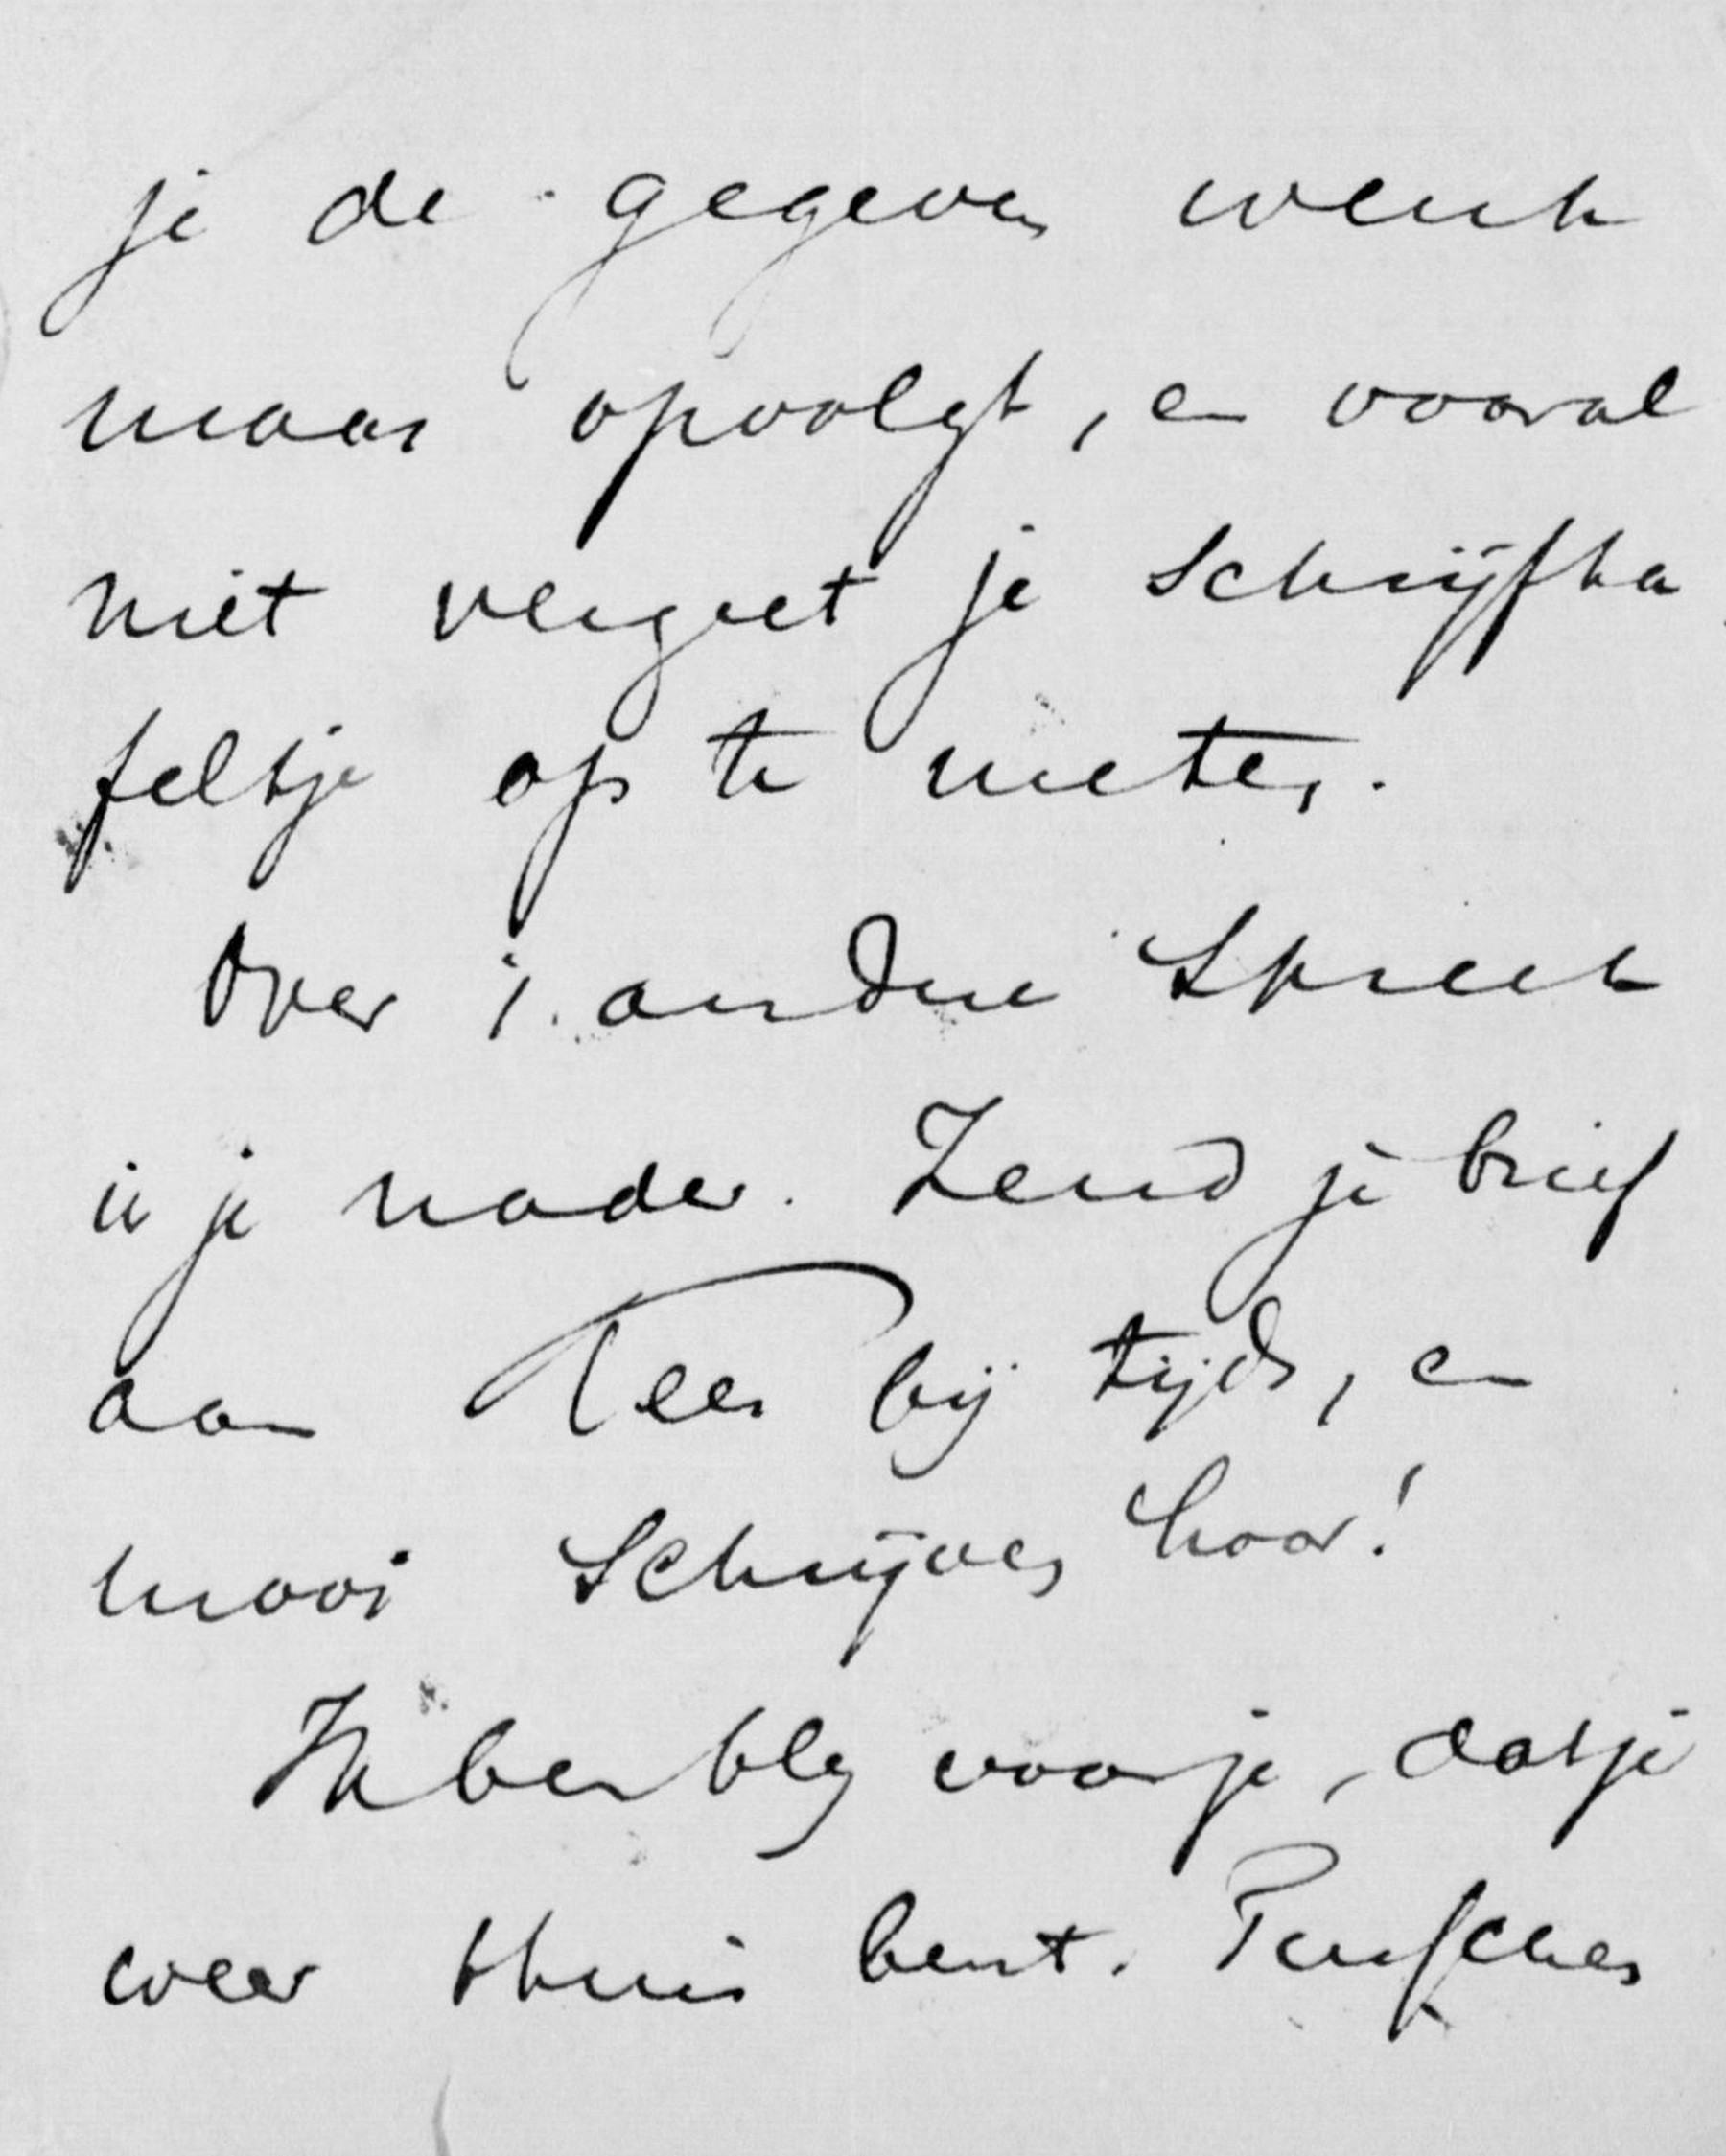 je de gegeven wenk
maar opvolgt, en vooral
niet vergeet je schrijfta
feltje op te meten.
Over 't andere spreek
ik je nader. Zend je brief
aan Kees bij tijds, en
mooi schrijven hoor!
Ik ben bly voor je, dat je
weer thuis bent.